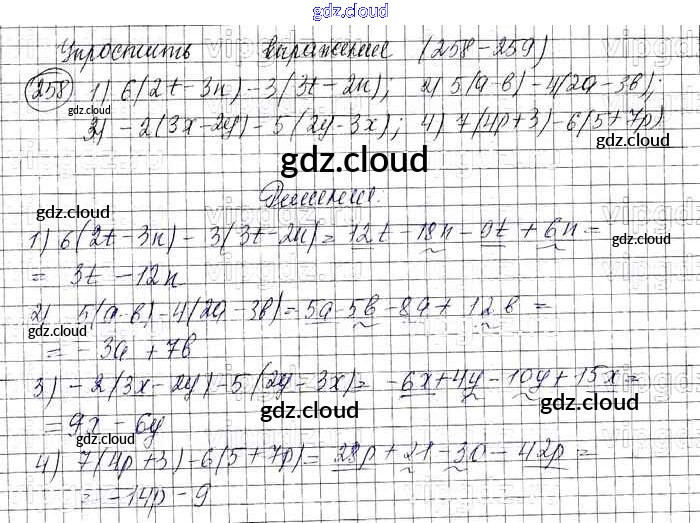 gdz.cloud
Упростить выражение (258-259)
258 1) 6(2t-3n)-3(3t-2n); 2) 5(a-b)-4(2a-3b);
gdz.cloud
3) -2(3x-2y)-5(2y-3x); 4) 7(4p+3)-6(5+7p)
gdz.cloud
gdz.cloud
Решение.
gdz.cloud
1) 6(2t-3n)-3(3t-2n)=12t-18n-9t+6n=
gdz.cloud
= 3t-12n
2) 5(a-b)-4(2a-3b)=5a-5b-8a+12b=
gdz.cloud
gdz.cloud
= -3a+7b
3) -2(3x-2y)-5(2y-3x)= -6x+4y-10y+15x=
gdz.cloud
= 9x-6y
gdz.cloud
gdz.cloud
4) 7(4p+3)-6(5+7p)=28p+21-30-42p=
= -14p-9
gdz.cloud